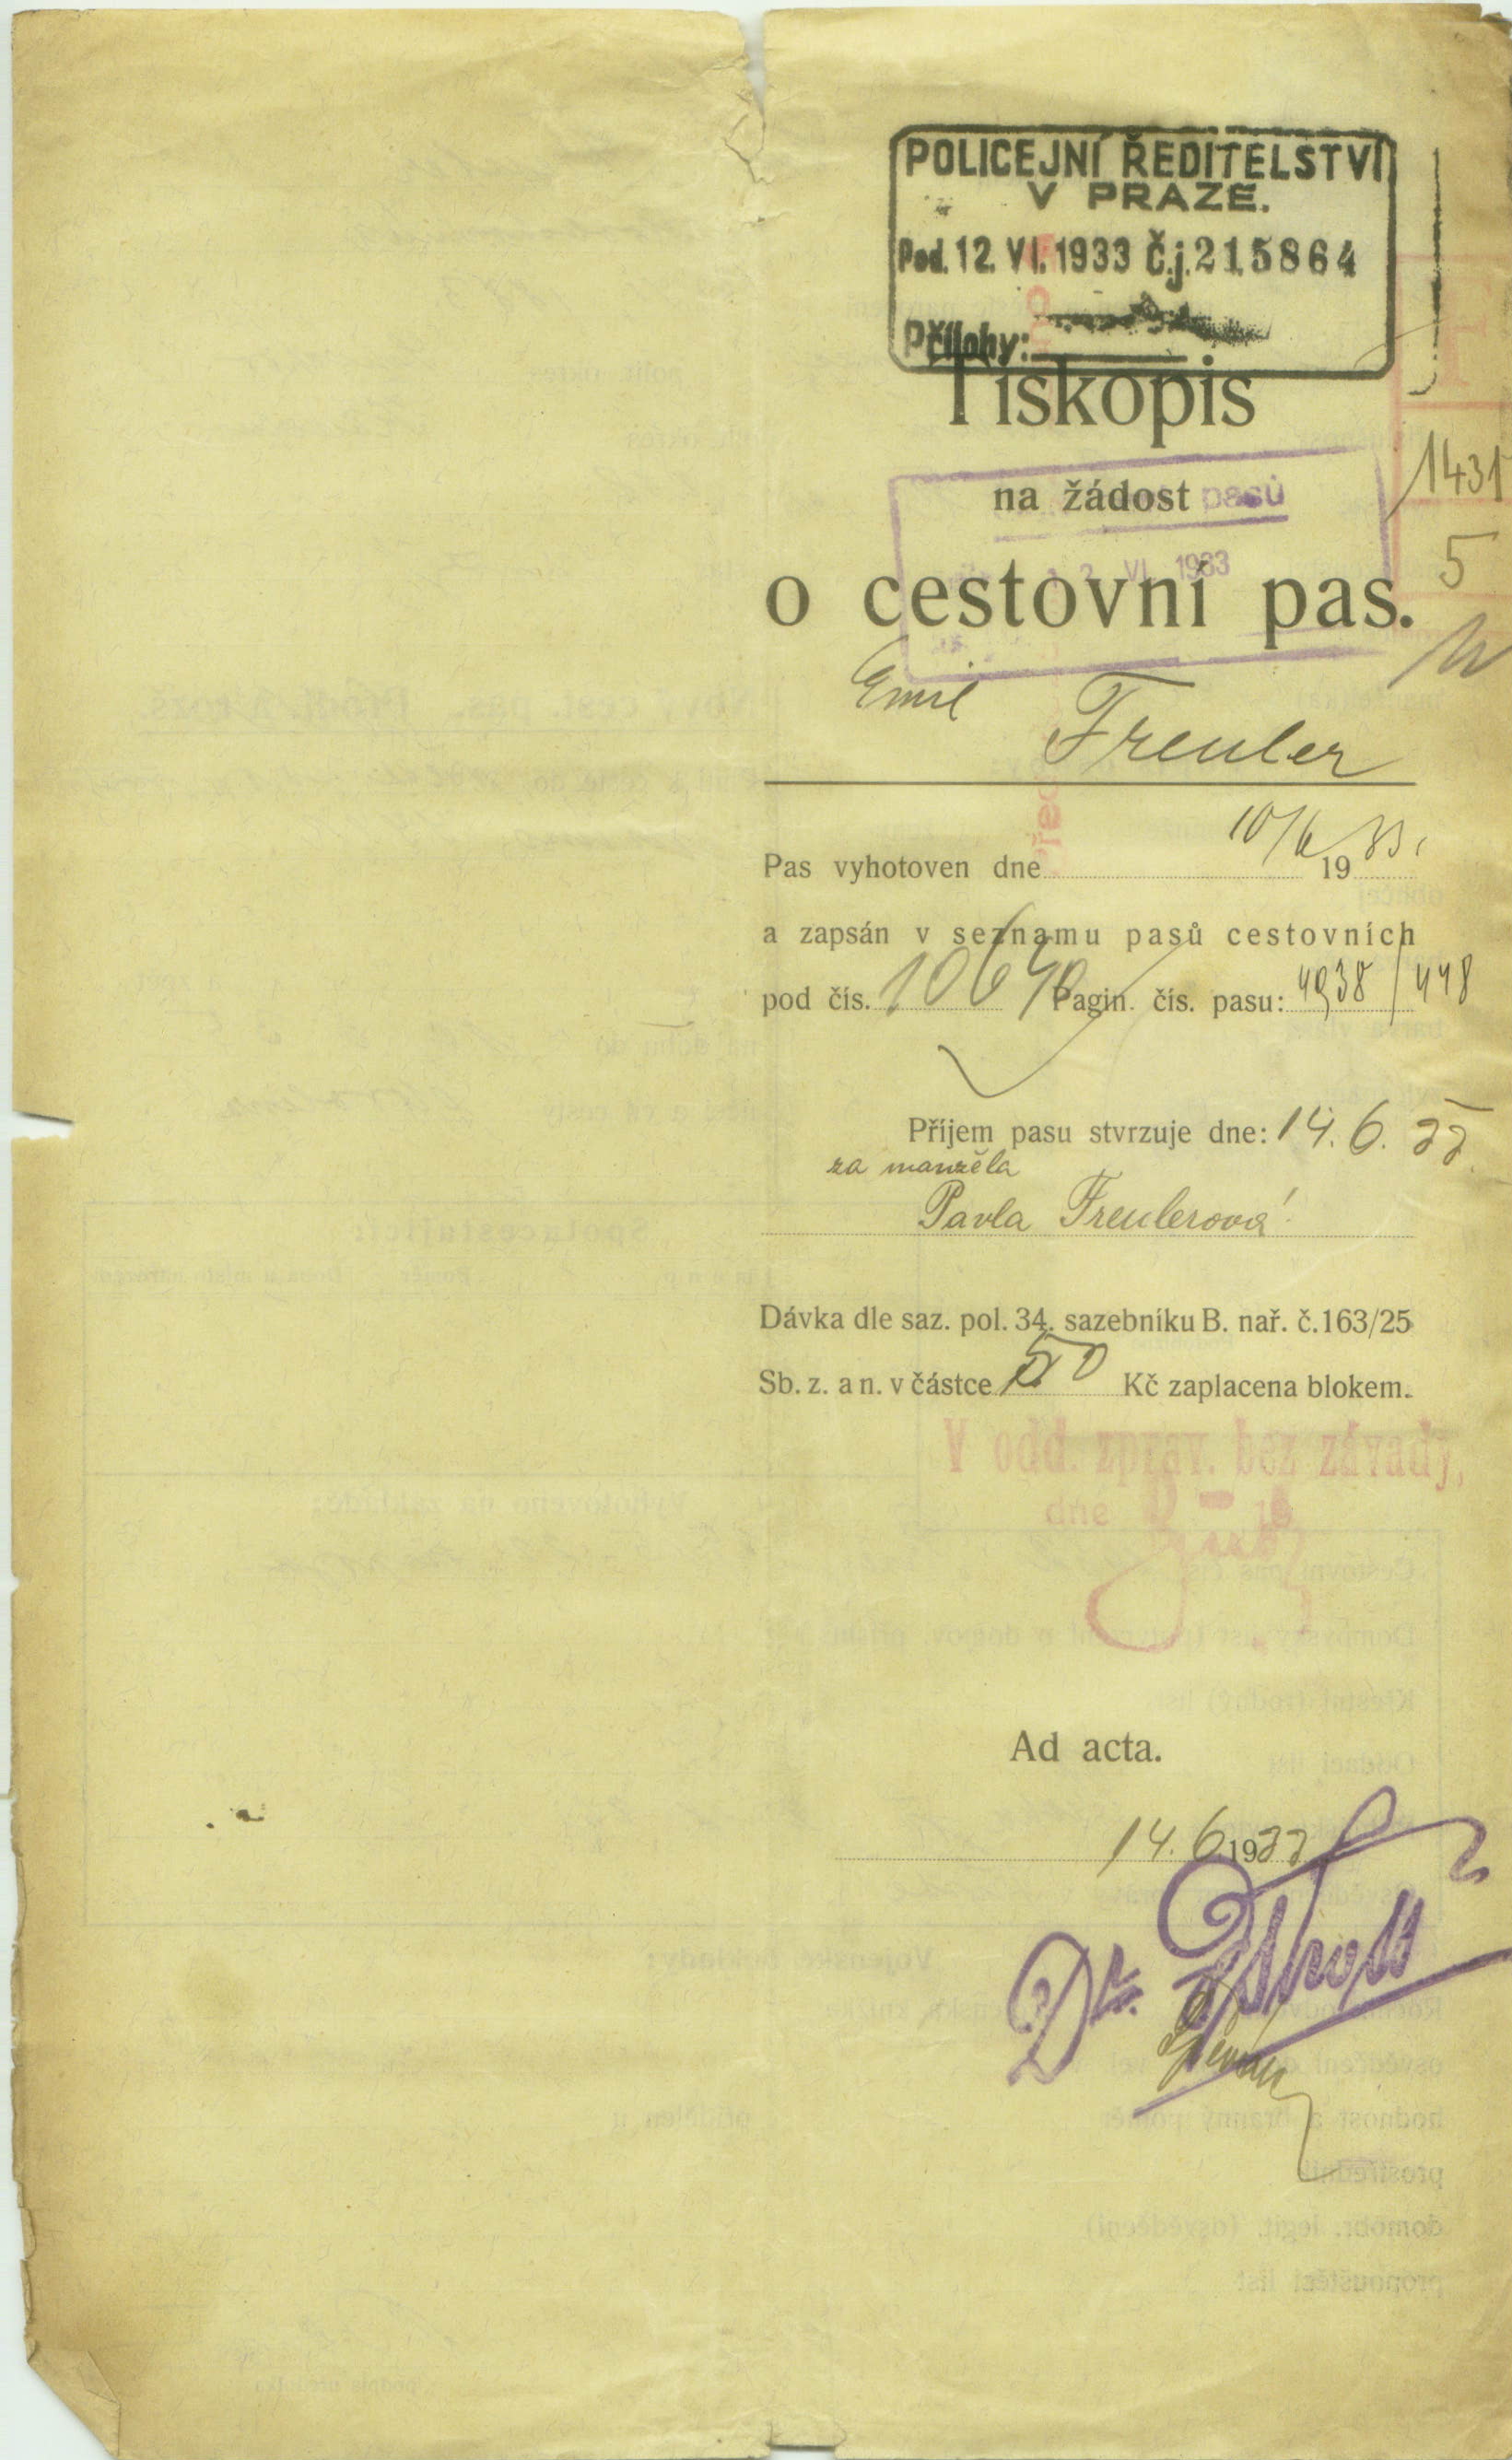 POLICEJNÍ ŘEDITELSTVÍ
V PRAZE.
Pod. 12. VI. 1933 Č.j. 215864
Přílohy:
Tiskopis
na žádost pasů
1431
5
VI. 1933
o cestovní pas.
Emil
Freuler
Pas vyhotoven dne 10/6 1933.
a zapsán v seznamu pasů cestovních
pod čís. 10640 Pagin. čís. pasu: 4938/448
Příjem pasu stvrzuje dne: 14. 6. 33.
za manžela
Pavla Freulerová
Dávka dle saz. pol. 34. sazebníku B. nař. č. 163/25
Sb. z. a n. v částce 50 Kč zaplacena blokem.
V odd. zpráv. bez závady,
dne
Ad acta.
14. 6. 1933
Dr.